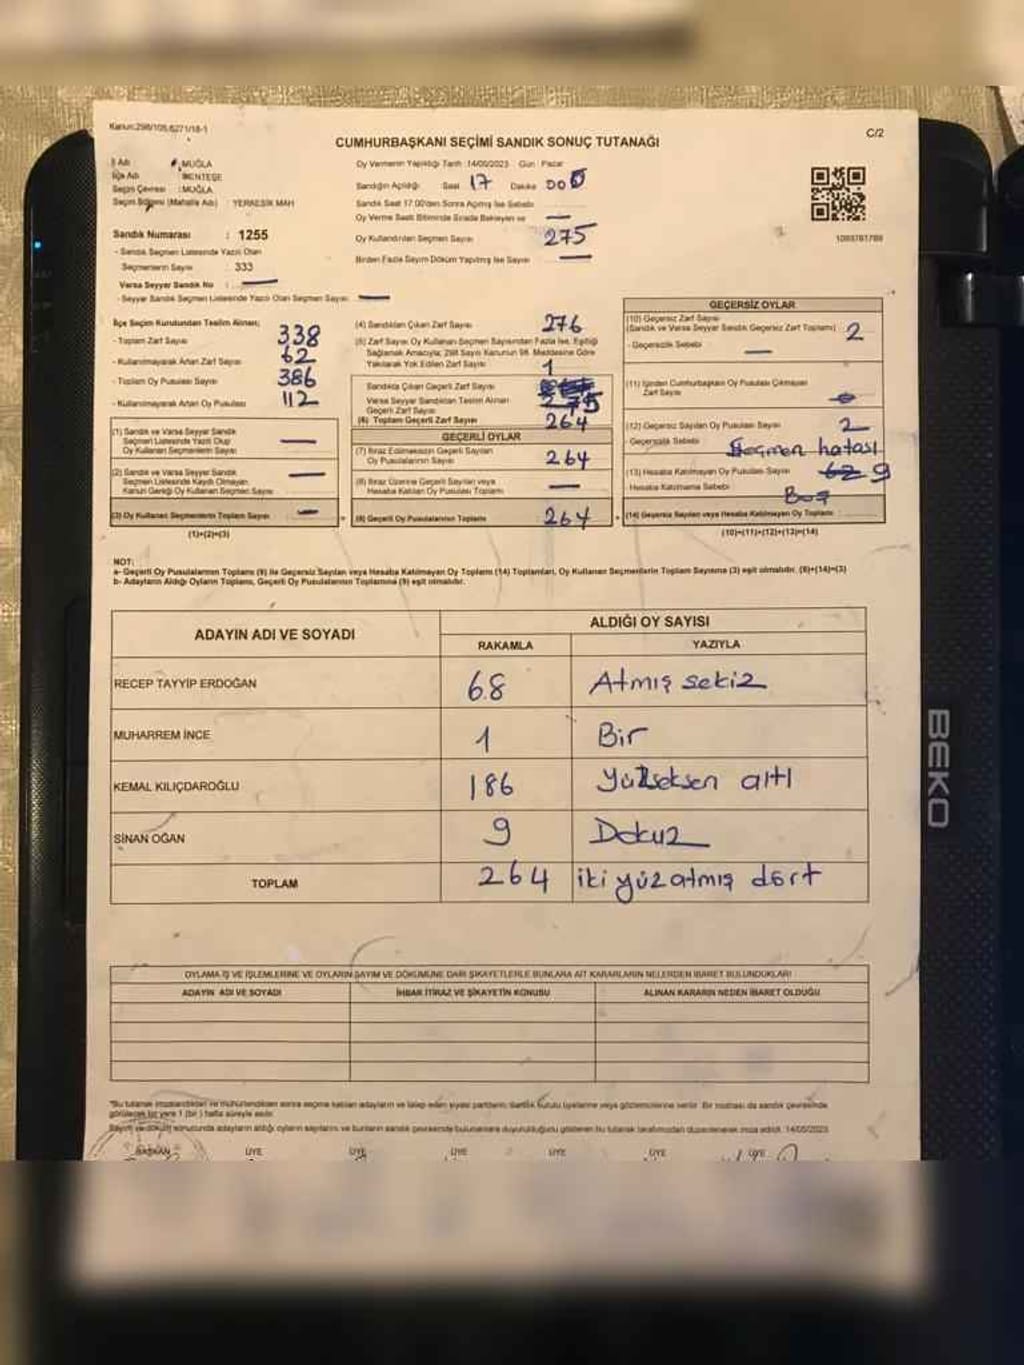 Kanun:298/105,6271/18-1
C/2
CUMHURBAŞKANI SEÇİMİ SANDIK SONUÇ TUTANAĞI
İl Adı : MUĞLA
İlçe Adı : MENTEŞE
Seçim Çevresi : MUĞLA
Seçim Bölgesi (Mahalle Adı) : YERKESİK MAH
Sandık Numarası : 1255
- Sandık Seçmen Listesinde Yazılı Olan
Seçmenlerin Sayısı : 333
Varsa Seyyar Sandık No : —
- Seyyar Sandık Seçmen Listesinde Yazılı Olan Seçmen Sayısı —
Oy Vermenin Yapıldığı Tarih : 14/05/2023 Gün : Pazar
Sandığın Açıldığı Saat 17 Dakika 00
Sandık Saat 17.00'den Sonra Açılmış İse Sebebi
Oy Verme Saati Bitiminde Sırada Bekleyen ve —
Oy Kullandırılan Seçmen Sayısı 275
Birden Fazla Sayım Döküm Yapılmış İse Sayısı —
1093781789
İlçe Seçim Kurulundan Teslim Alınan;
- Toplam Zarf Sayısı 338
- Kullanılmayarak Artan Zarf Sayısı 62
- Toplam Oy Pusulası Sayısı 386
- Kullanılmayarak Artan Oy Pusulası 112
(1) Sandık ve Varsa Seyyar Sandık
Seçmen Listesinde Yazılı Olup
Oy Kullanan Seçmenlerin Sayısı —
(2) Sandık ve Varsa Seyyar Sandık
Seçmen Listesinde Kaydı Olmayan
Kanun Gereği Oy Kullanan Seçmen Sayısı —
(3) Oy Kullanan Seçmenlerin Toplam Sayısı —
(1)+(2)=(3)
(4) Sandıktan Çıkan Zarf Sayısı 276
(5) Zarf Sayısı Oy Kullanan Seçmen Sayısından Fazla İse, Eşitliği
Sağlamak Amacıyla; 298 Sayılı Kanunun 98. Maddesine Göre
Yakılarak Yok Edilen Zarf Sayısı 1
Sandıkta Çıkan Geçerli Zarf Sayısı
Varsa Seyyar Sandıktan Teslim Alınan
Geçerli Zarf Sayısı 275
(6) Toplam Geçerli Zarf Sayısı 264
GEÇERLİ OYLAR
(7) İtiraz Edilmeksizin Geçerli Sayılan
Oy Pusulalarının Sayısı 264
(8) İtiraz Üzerine Geçerli Sayılan veya
Hesaba Katılan Oy Pusulası Toplamı —
(9) Geçerli Oy Pusulalarının Toplamı 264
GEÇERSİZ OYLAR
(10) Geçersiz Zarf Sayısı
(Sandık ve Varsa Seyyar Sandık Geçersiz Zarf Toplamı) 2
- Geçersizlik Sebebi —
(11) İçinden Cumhurbaşkanı Oy Pusulası Çıkmayan
Zarf Sayısı
(12) Geçersiz Sayılan Oy Pusulası Sayısı 2
- Geçersizlik Sebebi Seçmen hatası
(13) Hesaba Katılmayan Oy Pusulası Sayısı 62 9
- Hesaba Katılmama Sebebi Boş
(14) Geçersiz Sayılan veya Hesaba Katılmayan Oy Toplamı
(10)+(11)+(12)+(13)=(14)
NOT:
a- Geçerli Oy Pusulalarının Toplamı (9) ile Geçersiz Sayılan veya Hesaba Katılmayan Oy Toplamı (14) Toplamları, Oy Kullanan Seçmenlerin Toplam Sayısına (3) eşit olmalıdır. (9)+(14)=(3)
b- Adayların Aldığı Oyların Toplamı, Geçerli Oy Pusulalarının Toplamına (9) eşit olmalıdır.
ADAYIN ADI VE SOYADI
ALDIĞI OY SAYISI
RAKAMLA YAZIYLA
RECEP TAYYİP ERDOĞAN 68 Atmış sekiz
MUHARREM İNCE 1 Bir
KEMAL KILIÇDAROĞLU 186 Yüzseksen altı
SİNAN OĞAN 9 Dokuz
TOPLAM 264 iki yüz atmış dört
OYLAMA İŞ VE İŞLEMLERİNE VE OYLARIN SAYIM VE DÖKÜMÜNE DAİR ŞİKAYETLERLE BUNLARA AİT KARARLARIN NELERDEN İBARET BULUNDUKLARI
ADAYIN ADI VE SOYADI İHBAR İTİRAZ VE ŞİKAYETİN KONUSU ALINAN KARARIN NEDEN İBARET OLDUĞU
*Bu tutanak imzalandıktan ve mühürlendikten sonra seçime katılan adayların ve talep eden siyasi partilerin; Sandık Kurulu üyelerine veya gözlemcilerine verilir. Bir nüshası da sandık çevresinde
görülecek bir yere 1 (bir) hafta süreyle asılır.
Sayım ve döküm sonucunda adayların aldığı oyların sayılarını ve bunların sandık çevresinde bulunanlara duyurulduğunu gösteren bu tutanak tarafımızdan düzenlenerek imza edildi. 14/05/2023
BAŞKAN ÜYE ÜYE ÜYE ÜYE ÜYE ÜYE
BEKO